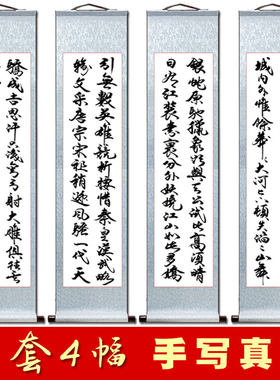 城内外惟馀莽莽大河上下顿失滔滔山舞
銀蛇原馳蠟象欲與天公試比高須晴
日看红装素裹分外妖娆江山如此多嬌
引無數英雄競折腰惜秦皇漢武略
輸文采唐宗宋祖稍逊風騷一代天
驕成吉思汗只識彎弓射大雕俱往矣
套4幅 手写真